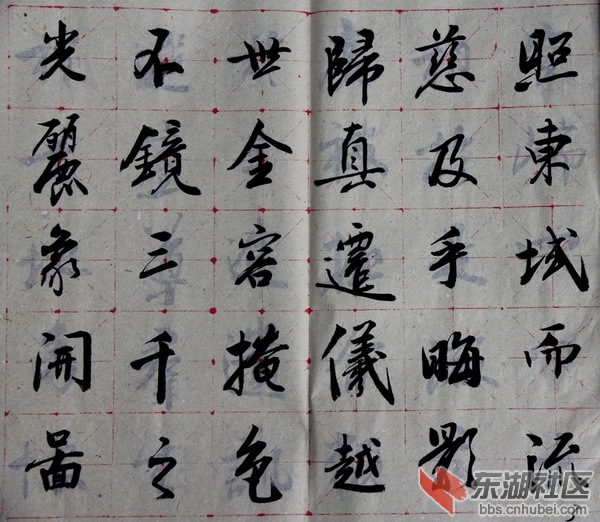 照東域而流
慈及乎晦影
歸真遷儀越
世金容掩色
不鏡三千之
光麗象開圖
东湖社区
bbs.cnhubei.com